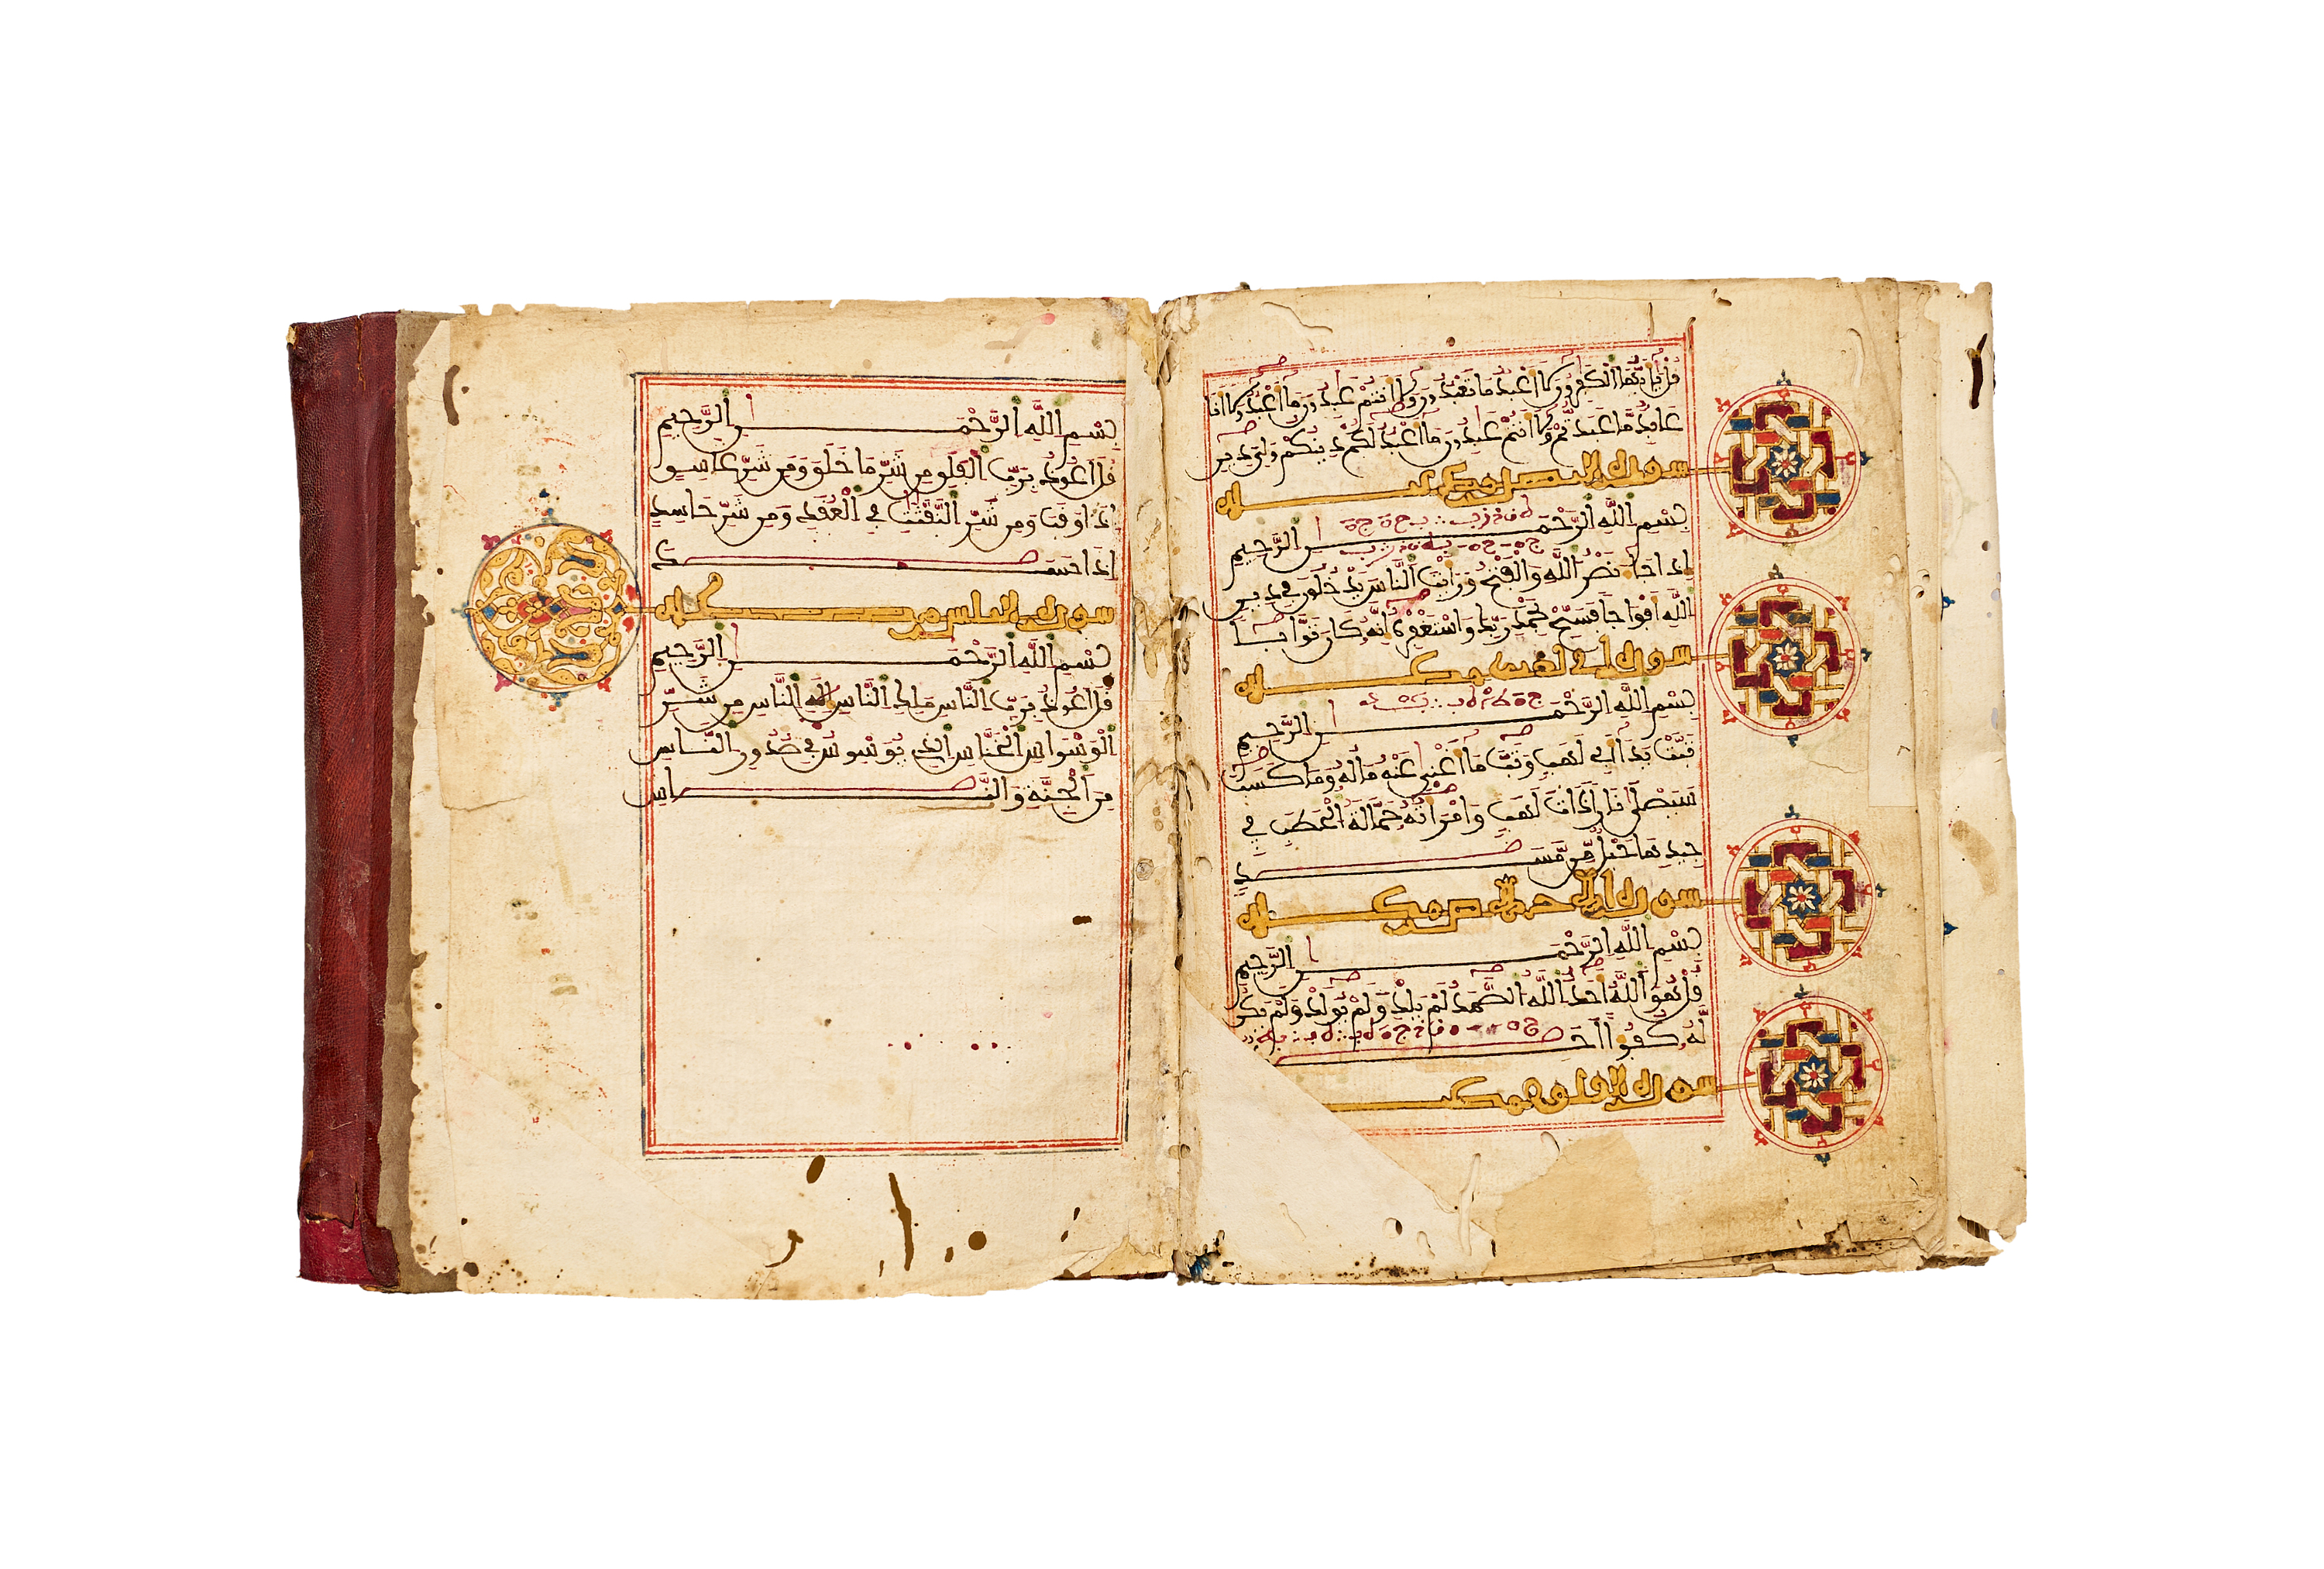 قُلْ يَٰأَيُّهَا اَلْكَٰفِرُونَ لَا أَعْبُدُ مَا تَعْبُدُونَ وَلَا أَنتُمْ عَٰبِدُونَ مَا أَعْبُدُ وَلَا أَنَا
عَابِدٌ مَّا عَبَدتُّمْ وَلَا أَنتُمْ عَٰبِدُونَ مَا أَعْبُدُ لَكُمْ دِينُكُمْ وَلِيَ دِينِ
سورة النصر
بِسْمِ اِللَّهِ اِلرَّحْمَٰنِ اِلرَّحِيمِ
إِذَا جَآءَ نَصْرُ اُللَّهِ وَالْفَتْحُ وَرَأَيْتَ اَلنَّاسَ يَدْخُلُونَ فِي دِينِ
اِللَّهِ أَفْوَاجًا فَسَبِّحْ بِحَمْدِ رَبِّكَ وَاسْتَغْفِرْهُ إِنَّهُ كَانَ تَوَّابًا
سورة أبي لهب مكية
بِسْمِ اِللَّهِ اِلرَّحْمَٰنِ اِلرَّحِيمِ
تَبَّتْ يَدَا أَبِي لَهَبٍ وَتَبَّ مَا أَغْنَىٰ عَنْهُ مَالُهُ وَمَا كَسَبَ
سَيَصْلَىٰ نَارًا ذَاتَ لَهَبٍ وَامْرَأَتُهُ حَمَّالَةُ اُلْحَطَبِ فِي
جِيدِهَا حَبْلٌ مِّن مَّسَدٍ
سورة الإخلاص مكية
بِسْمِ اِللَّهِ اِلرَّحْمَٰنِ اِلرَّحِيمِ
قُلْ هُوَ اَللَّهُ أَحَدٌ اَللَّهُ اُلصَّمَدُ لَمْ يَلِدْ وَلَمْ يُولَدْ وَلَمْ يَكُن
لَّهُ كُفُؤًا أَحَدٌ
سورة الفلق مكية
بِسْمِ اِللَّهِ اِلرَّحْمَٰنِ اِلرَّحِيمِ
قُلْ أَعُوذُ بِرَبِّ اِلْفَلَقِ مِن شَرِّ مَا خَلَقَ وَمِن شَرِّ غَاسِقٍ
إِذَا وَقَبَ وَمِن شَرِّ اِلنَّفَّٰثَٰتِ فِي اِلْعُقَدِ وَمِن شَرِّ حَاسِدٍ
إِذَا حَسَدَ
سورة الناس مكية
بِسْمِ اِللَّهِ اِلرَّحْمَٰنِ اِلرَّحِيمِ
قُلْ أَعُوذُ بِرَبِّ اِلنَّاسِ مَلِكِ اِلنَّاسِ إِلَٰهِ اِلنَّاسِ مِن شَرِّ
اِلْوَسْوَاسِ اِلْخَنَّاسِ اِلذِي يُوَسْوِسُ فِي صُدُورِ اِلنَّاسِ
مِنَ اَلْجِنَّةِ وَالنَّاسِ